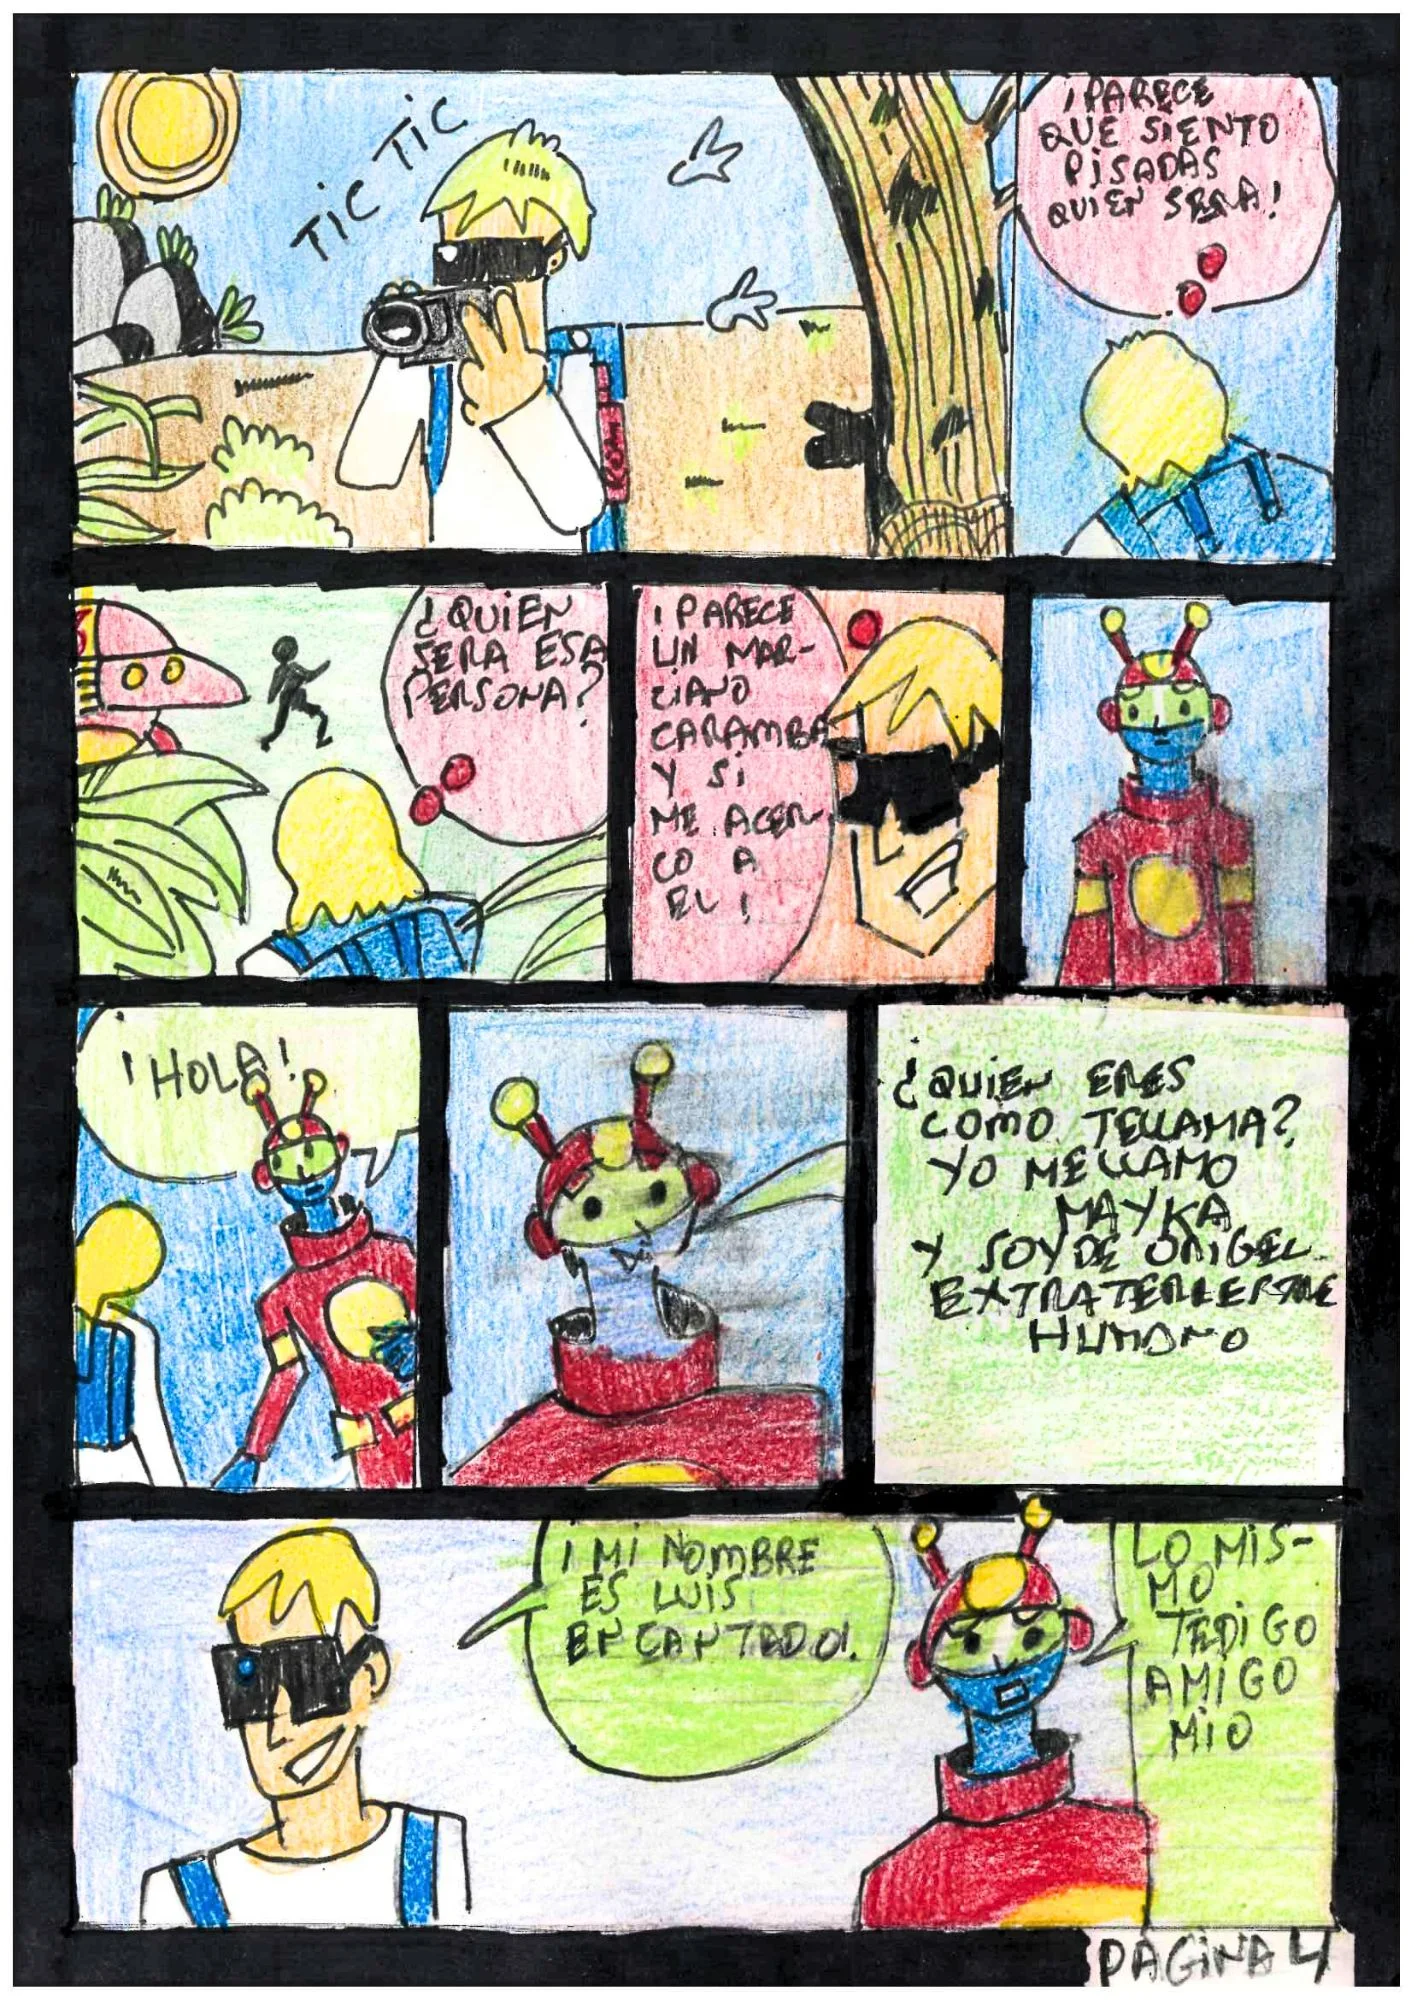 TIC TIC
¡PARECE
QUE SIENTO
PISADAS
QUIEN SERA!
¿QUIEN
SERA ESA
PERSONA?
¡PARECE
UN MAR-
CIANO
CARAMBA
Y SI
ME ACER-
CO A
EL!
¡HOLA!
¿QUIEN ERES
COMO TELLAMA?
YO MELLAMO
MAYKA
Y SOYDE ORIGEL
HUMANO
¡MI NOMBRE
ES LUIS
ENCANTADO!
LO MIS-
MO
TEDIGO
AMIGO
MIO
PAGINA 4